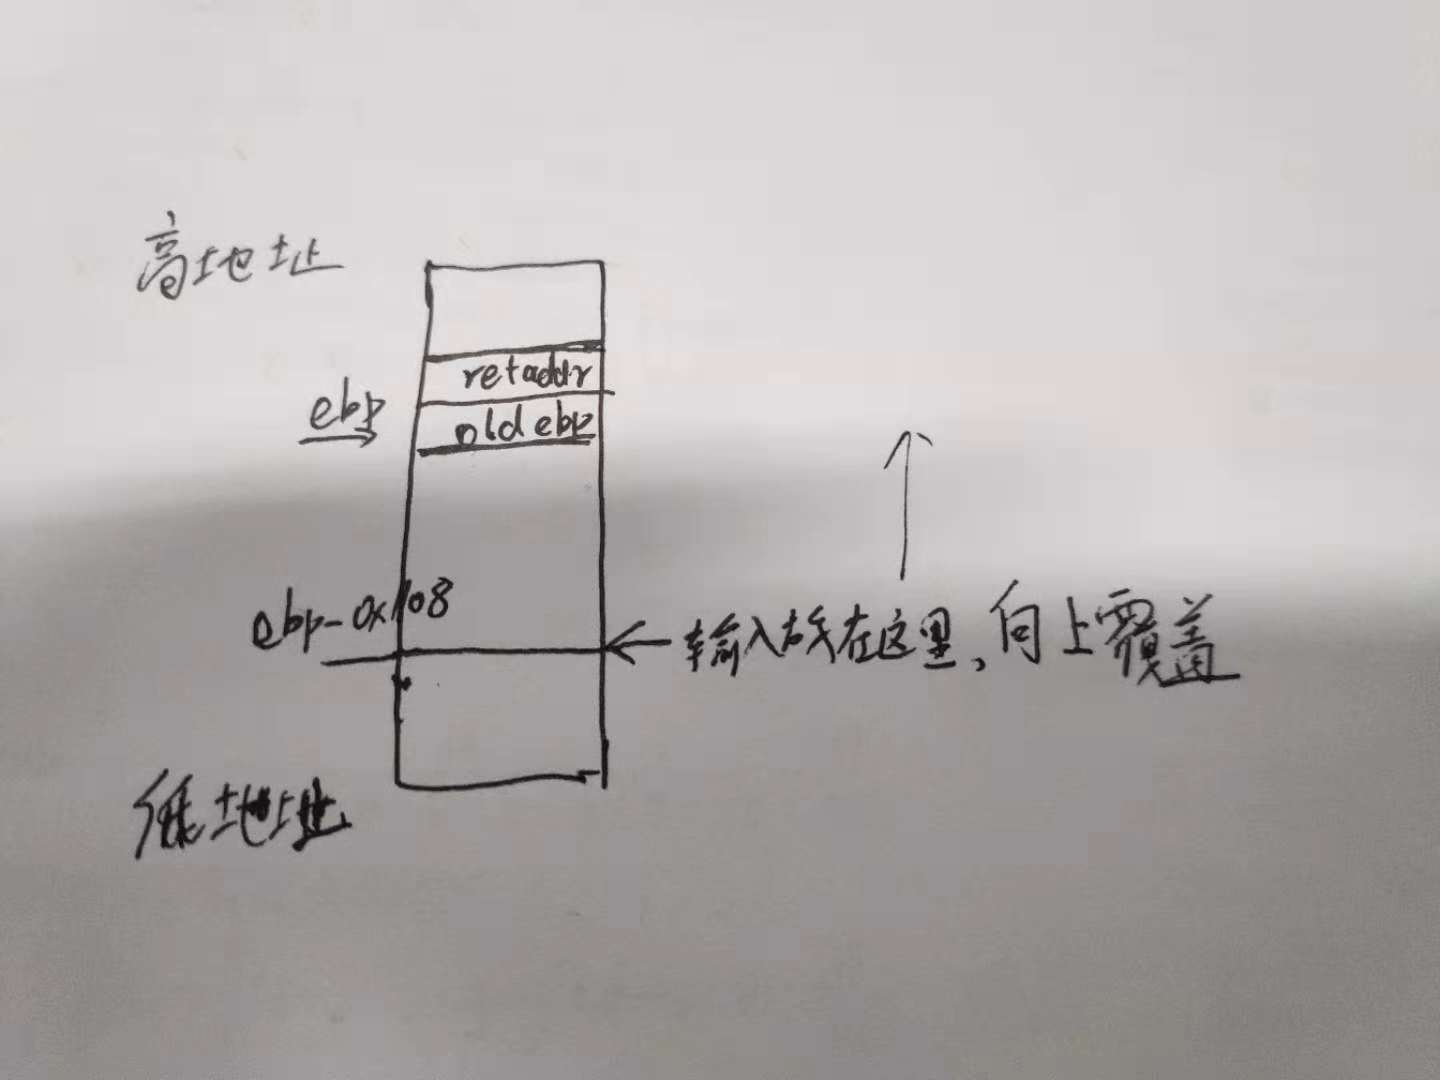 高地址
retaddr
ebp
old ebp
ebp-0x108
输入放在这里,向上覆盖
低地址